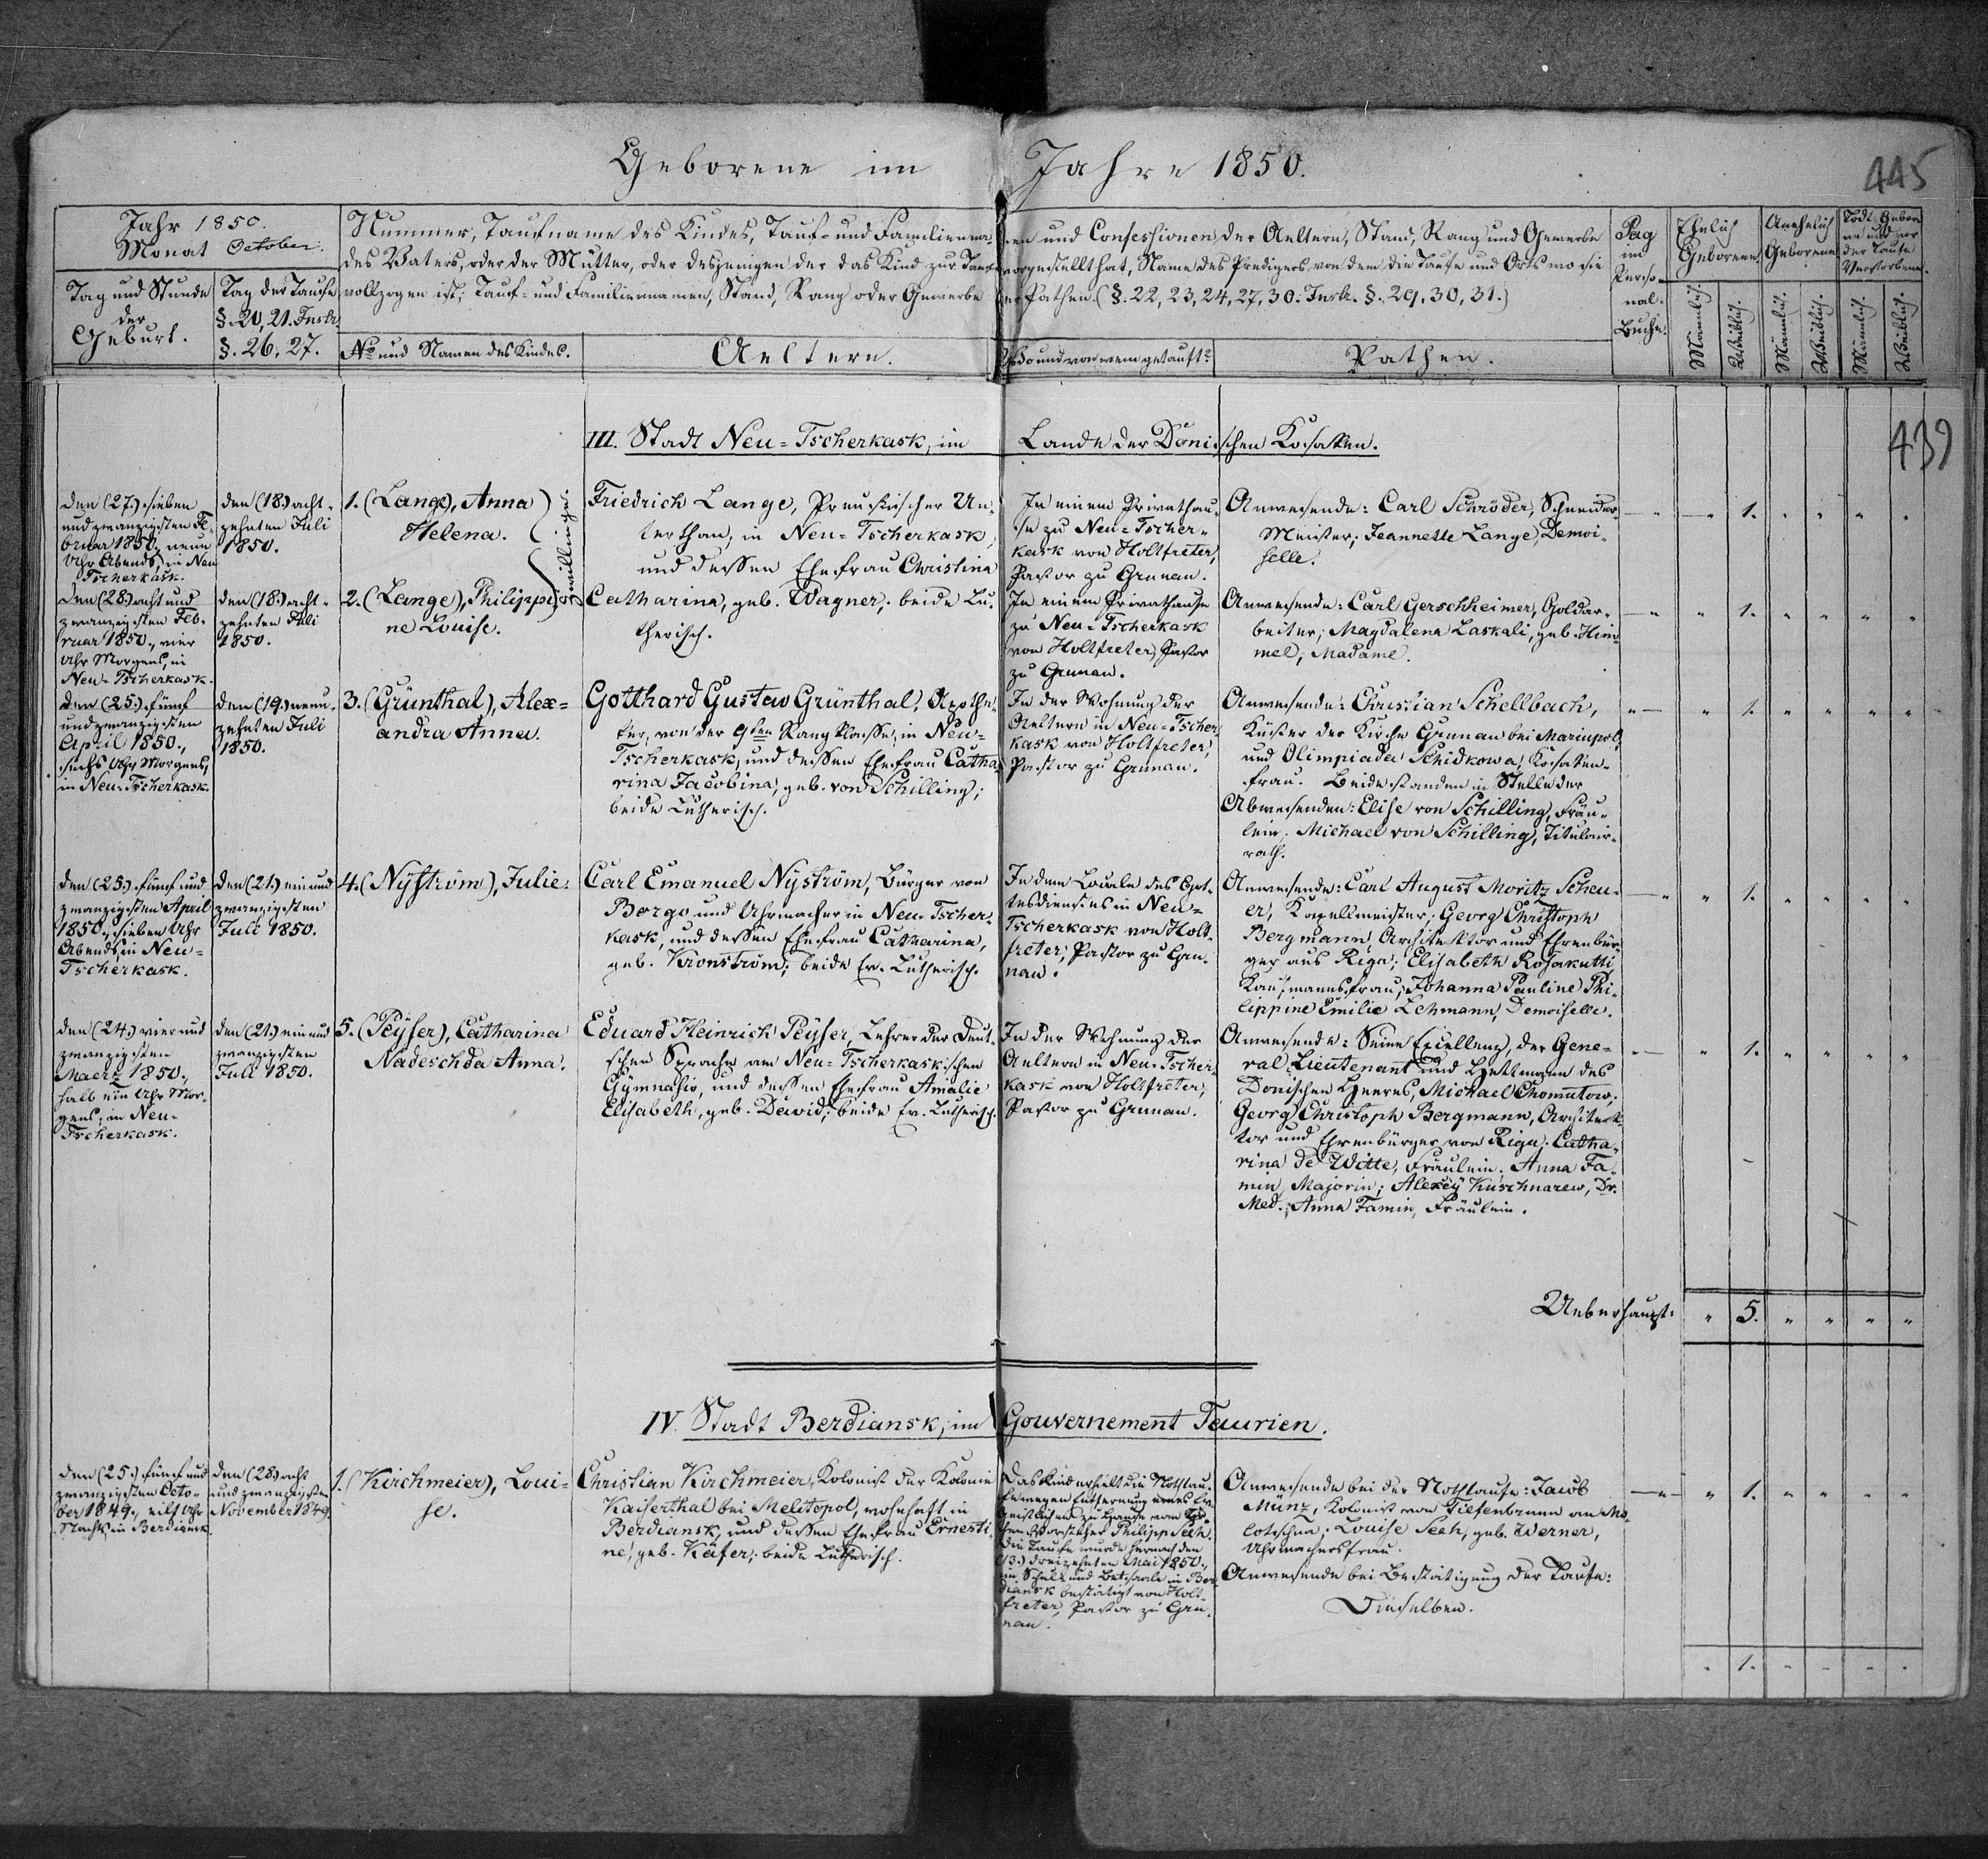 Geborene im Jahre 1850.
445
Jahr 1850.
Monat October.
Tag und Stunde
der
Geburt.
Tag der Taufe
§. 20, 21. Instr.
§. 26, 27.
Nummer, Taufname des Kindes, Tauf- und Familienna-
men und Confessionen der Aeltern, Stand, Rang und Gewerbe
des Vaters, oder der Mutter, oder desjenigen der das Kind zur Taufe
vorgestellt hat, Name des Predigers von dem die Taufe und Orts wo sie
vollzogen ist; Tauf- und Familiennamen, Stand, Rang oder Gewerbe
der Pathen. (§. 22, 23, 24, 27, 30. Instr. §. 29, 30, 31.)
No und Namen des Kindes.
Aeltern.
Wo und von wem getauft?
Pathen.
Pag
im
Perso-
nal-
Buche.
Ehelich
Geborene
Unehelich
Geborene
Todt-Gebore
ne und vor
der Taufe
Verstorbene.
Männlich.
Weiblich.
Männlich.
Weiblich.
Männlich.
Weiblich.
439
III. Stadt Neu-Tscherkask, im Lande der Donischen Kosaken.
den (27.) sieben
und zwanzigsten Fe-
bruar 1850., neun
Uhr Abends, in Neu
Tscherkask.
den (18.) acht-
zehnten Juli
1850.
1. (Lange), Anna
Helena.
Zwillinge.
Friedrich Lange, Preussischer Un-
terthan, in Neu-Tscherkask,
und dessen Ehefrau Christina
In einem Privathau-
se zu Neu-Tscher-
kask von Holtfreter,
Pastor zu Grunau.
Anwesende: Carl Schröder, Schneider-
Meister; Jeannette Lange, Demoi-
selle.
— " — " 1. " " " "
den (28.) acht und
zwanzigsten Feb-
ruar 1850., vier
Uhr Morgens, in
Neu-Tscherkask.
den (18.) acht-
zehnten Juli
1850.
2. (Lange), Philippi-
ne Louise.
Catharina, geb. Wagner; beide Lu-
therisch.
In einem Privathause
zu Neu-Tscherkask
von Holtfreter, Pastor
zu Grunau.
Anwesende: Carl Gerschheimer, Goldar-
beiter; Magdalena Laskali, geb. Him-
mel, Madame.
— " " 1. " " " "
den (25.) fünf
und zwanzigsten
April 1850.,
sechs Uhr Morgens,
in Neu-Tscherkask.
den (19.) neun-
zehnten Juli
1850.
3. (Grünthal), Alex-
andra Anna.
Gotthard Gustav Grünthal, Apothe-
ker, von der 9ten Rangklasse, in Neu-
Tscherkask, und dessen Ehefrau Catha-
rina Jacobina, geb. von Schilling;
beide Lutherisch.
In der Wohnung der
Aeltern in Neu-Tscher-
kask von Holtfreter,
Pastor zu Grunau.
Anwesende: Christian Schellbach,
Küster der Kirche Grunau bei Mariupol,
und Olimpiada Schidkowa, Kosaken-
frau. Beide standen in Stelle der
Abwesenden: Elise von Schilling, Fräu-
lein; Michael von Schilling, Titulair-
rath.
" — " 1. " " " "
den (25.) fünf und
zwanzigsten April
1850., sieben Uhr
Abends, in Neu-
Tscherkask.
den (21.) ein und
zwanzigsten
Juli 1850.
4. (Nyström), Julie.
Carl Emanuel Nyström, Bürger von
Borgo und Uhrmacher in Neu-Tscher-
kask, und dessen Ehefrau Catharina,
geb. Kronström; beide Ev. Lutherisch.
In dem Locale des Got-
tesdienstes in Neu-
Tscherkask von Holt-
freter, Pastor zu Gru-
nau.
Anwesende: Carl August Moritz Scheu-
er, Kapellmeister; Georg Christoph
Bergmann, Architektor und Ehrenbür-
ger aus Riga; Elisabeth Rosakutti,
Kaufmannsfrau; Johanna Pauline Phi-
lippine Emilie Lehmann, Demoiselle.
— " " 1. " " " "
den (24.) vier und
zwanzigsten
Maerz 1850.,
halb ein Uhr Mor-
gens, in Neu-
Tscherkask.
den (21.) ein und
zwanzigsten
Juli 1850.
5. (Peyser), Catharina
Nadeschda Anna.
Eduard Heinrich Peyser, Lehrer der Deut-
schen Sprache am Neu-Tscherkaskischen
Gymnasio, und dessen Ehefrau Amalie
Elisabeth, geb. David; beide Ev. Lutherisch.
In der Wohnung der
Aeltern in Neu-Tscher-
kask von Holtfreter,
Pastor zu Grunau.
Anwesende: Seine Excellenz, der Gene-
ral-Lieutenant und Hettmann des
Donischen Heeres, Michael Chomutow;
Georg Christoph Bergmann, Architek-
tor und Ehrenbürger von Riga; Catha-
rina de Witte, Fräulein; Anna Fa-
min, Majorin; Alexey Kuschnarew, Dr.
Med.; Anna Famin, Fräulein.
" — " 1. " " " "
Ueberhaupt: " 5. " " " "
IV. Stadt Berdiansk, im Gouvernement Taurien.
den (25.) fünf und
zwanzigsten Octo-
ber 1849., eilf Uhr
Nachts, in Berdiansk
den (28.) acht
und zwanzigsten
November 1849.
1. (Kirchmeier), Loui-
se.
Christian Kirchmeier, Kolonist der Kolonie
Kaiserthal bei Melitopol, wohnhaft in
Berdiansk, und dessen Ehefrau Ernesti-
ne, geb. Käfer; beide Lutherisch.
Das Kind erhielt die Nothtau-
fe wegen Entfernung eines Ev.
Geistlichen zu Hause vom Kir-
chen-Vorsteher Philipp Seeh.
Die Taufe wurde hernach den
(13.) dreizehnten Mai 1850.,
im Schul- und Betsaale in Ber-
diansk bestätigt von Holt-
freter, Pastor zu Gru-
nau.
Anwesende bei der Nothtaufe: Jacob
Münz, Kolonist von Tiefenbrunn an Mo-
lotschna; Louise Seeh, geb. Werner,
Uhrmachersfrau.
Anwesende bei Bestätigung der Taufe:
Dieselben.
— " — " 1. " " " "
" 1. " " " "